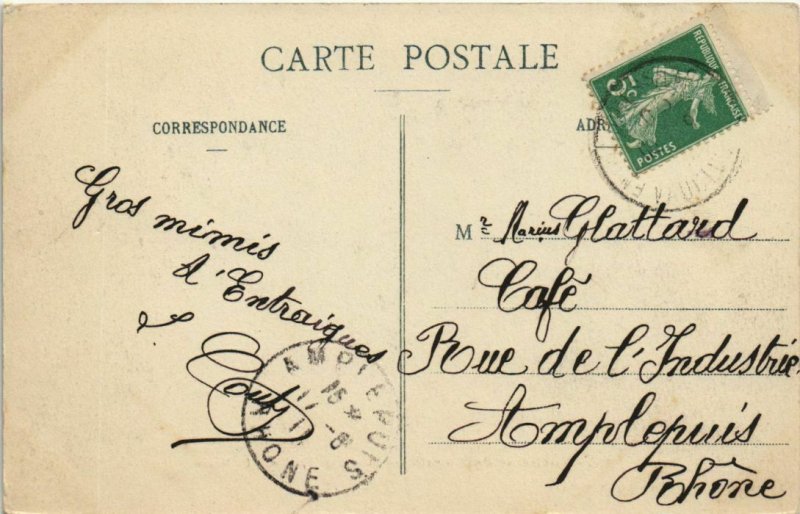 CARTE POSTALE
CORRESPONDANCE
ADR
RÉPUBLIQUE FRANÇAISE
5c
POSTES
Gros mimis
d'Entraigues
Mr Marius Glattard
Café
Rue de l'Industrie
Amplepuis
Rhône
AMPLEPUIS
16 *
11 -6
RHONE